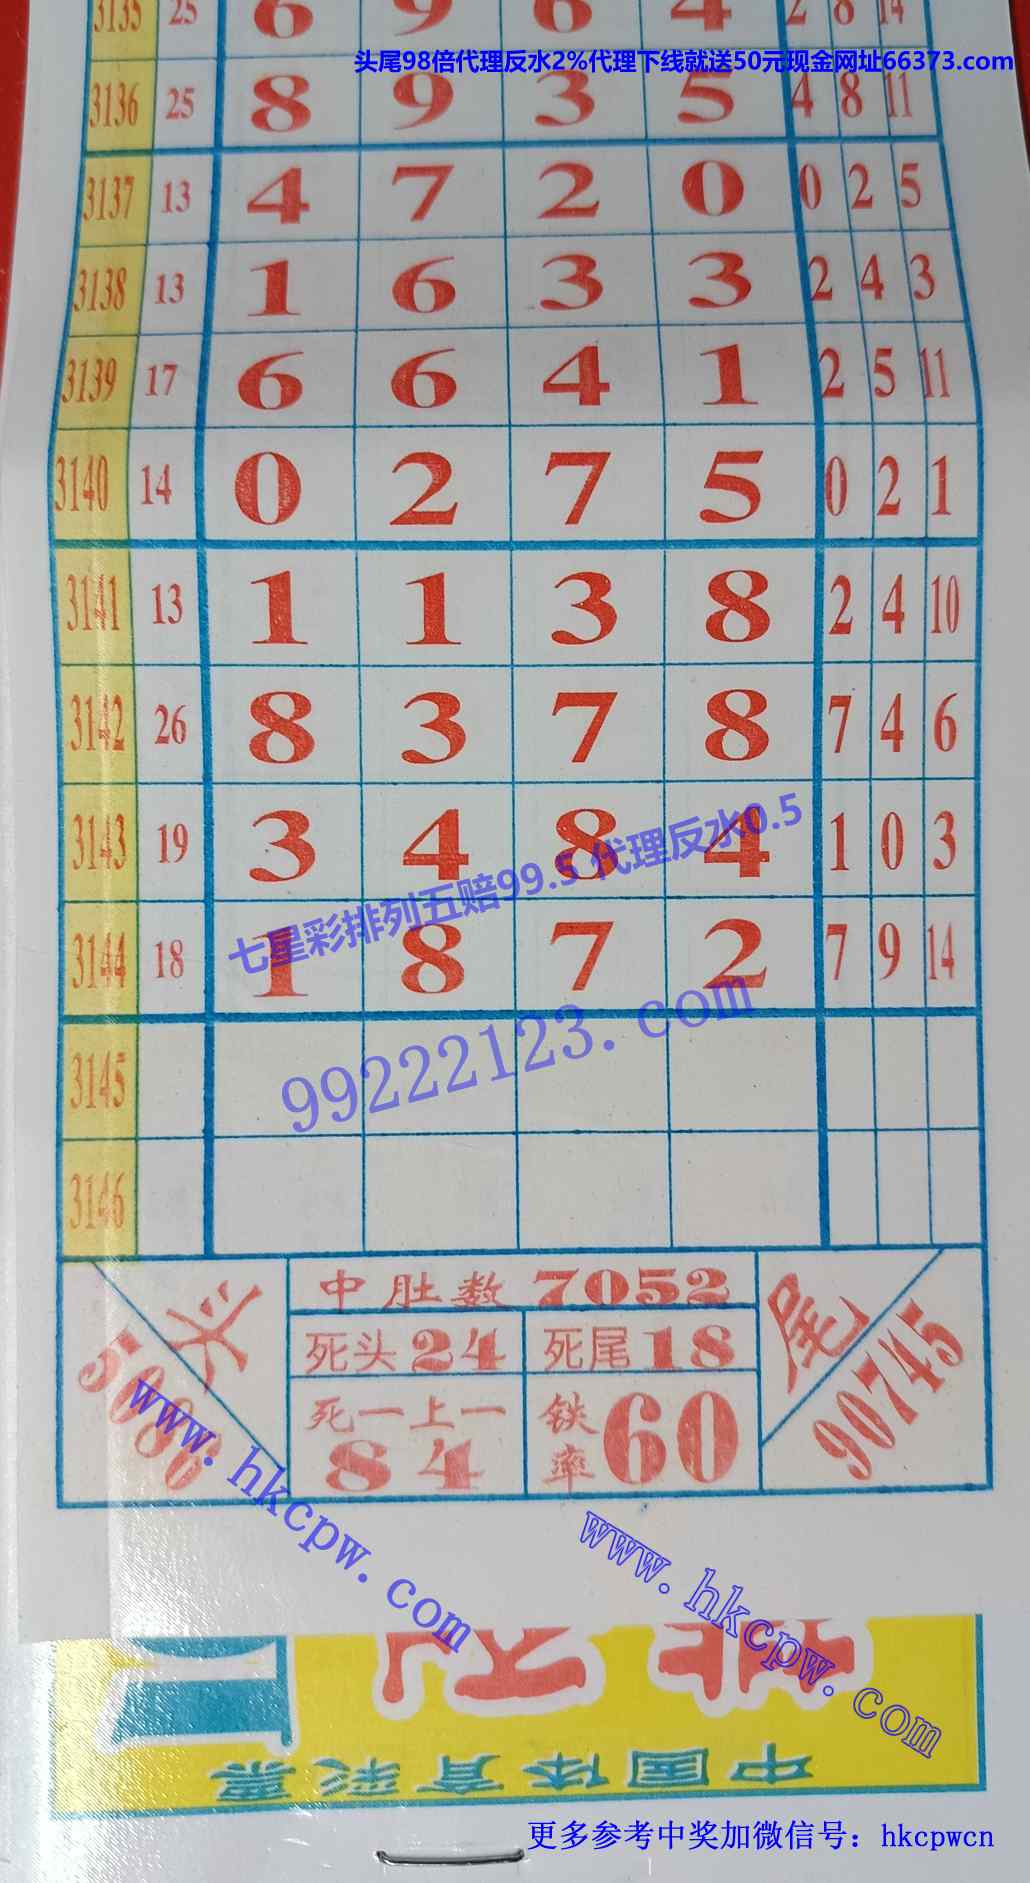 3135 25 6 9 6 4 2 8 14
头尾98倍代理反水2%代理下线就送50元现金网址66373.com
3136 25 8 9 3 5 4 8 11
3137 13 4 7 2 0 0 2 5
3138 13 1 6 3 3 2 4 3
3139 17 6 6 4 1 2 5 11
3140 14 0 2 7 5 0 2 1
3141 13 1 1 3 8 2 4 10
3142 26 8 3 7 8 7 4 6
3143 19 3 4 8 4 1 0 3
七星彩排列五赔99.5 代理反水0.5
3144 18 1 8 7 2 7 9 14
99222123.com
3145
3146
中肚数 7052
头
尾
死头24 死尾18
90745
死一上一
84
铁率60
www.hkcpw.com
www.hkcpw.com
中国体育彩票
更多参考中奖加微信号：hkcpwcn